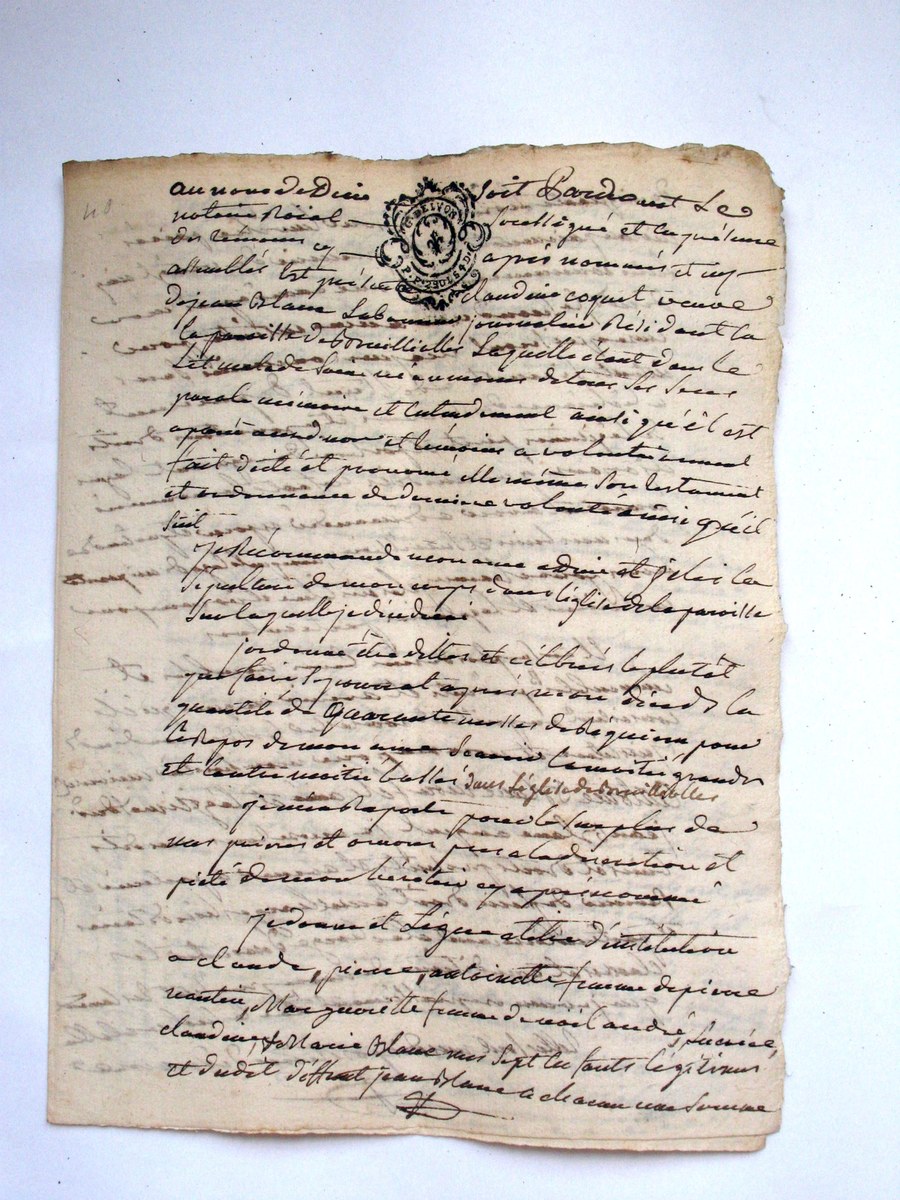 48
au nom de Dieu soit Pardevant Le
notaire Roial soussigné et en présence
des témoins cy après nommés et en
assemblés est présente claudine coquet veuve
G. DE LYON
P. P. 2 SOLS 4 D.
de jean Blanc Laboureur journalier Résidant en
la paroisse de Lequelle étant dans le
Lit malade Saine néanmoins de tous ses sens
parole mémoire et entendement ainsi qu'il est
aparu audt nore et témoins a volontairement
fait dicté et prononcé elle même son testament
et ordonnance de dernière volonté ainsi qu'il
suit
Je Recommande mon ame a dieu et j'élis la
sepulture de mon corps dans l'église de la paroisse
sur laquelle je décéderai
j'ordonne être dittes et célébrés le plutôt
que faire se pourrat après mon décéds la
quantité de quarante messes de Réquiem pour
le Repos de mon ame scavoir la moitié grandes
et l'autre moitié basses dans l'église de
je m'en Raporte pour le surplus de
mes prières et a la discrétion et
piété de mon héritier cy après nommé
je donne et Légue a titre d'institution
a claude, pierre, antoinette femme de pierre
Marguerite femme de noël andré,
claudine, & Marie Blanc mes sept enfants légitimes
et dudit déffunt jean Blanc a chacun une somme